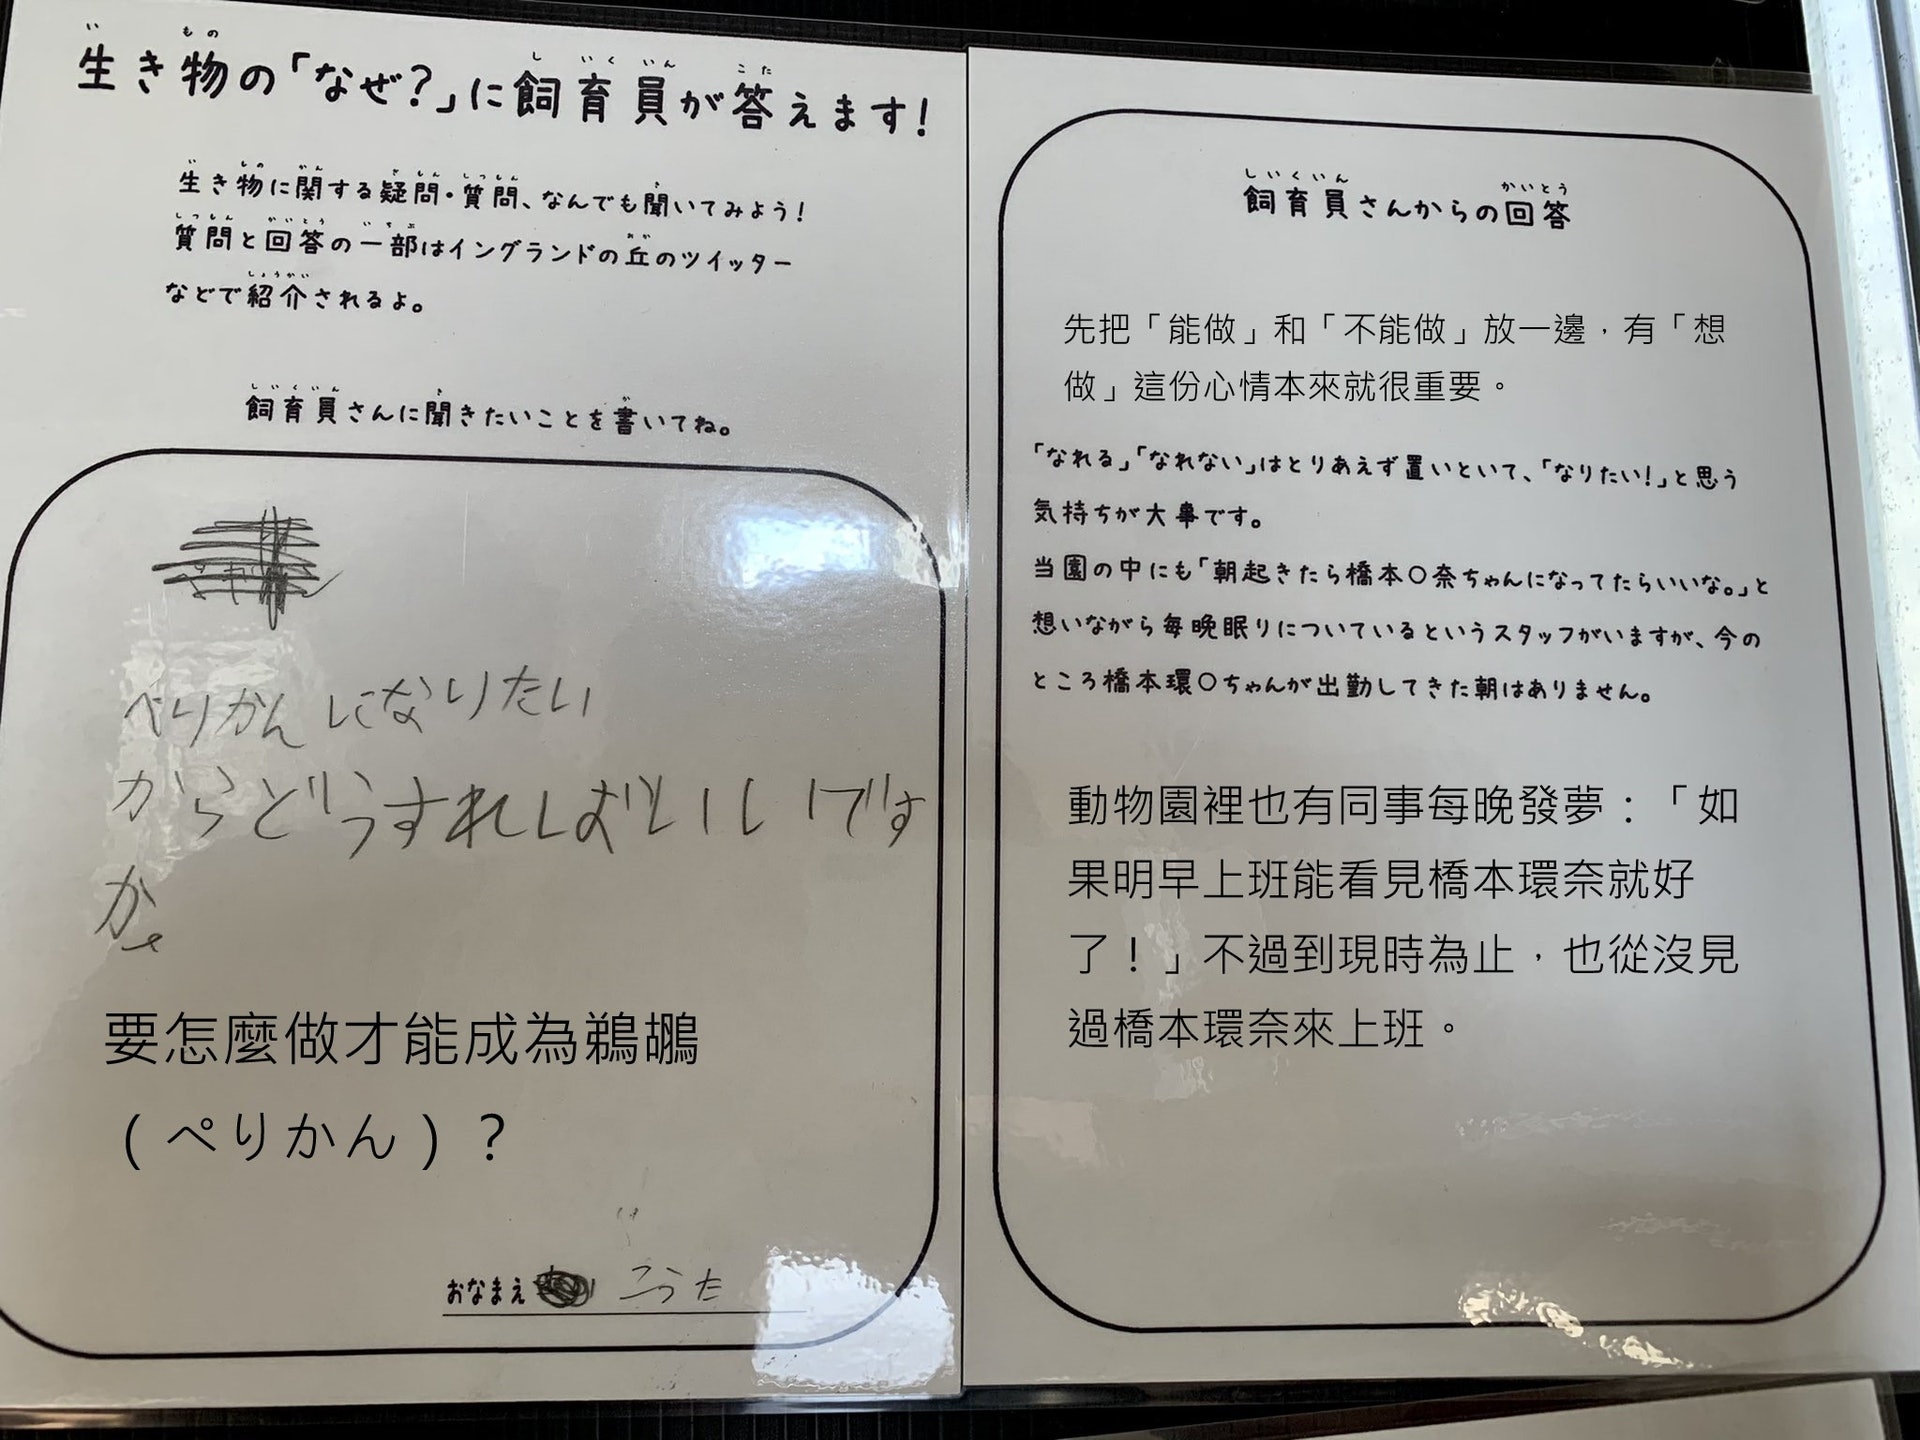 生き物の「なぜ?」に飼育員が答えます!
生き物に関する疑問・質問、なんでも聞いてみよう!
質問と回答の一部はイングランドの丘のツイッター
などで紹介されるよ。
飼育員さんに聞きたいことを書いてね。
ぺりかんになりたい
からどうすればいいです
か
要怎麼做才能成為鵜鶘
(ぺりかん)?
おなまえ こうた
飼育員さんからの回答
先把「能做」和「不能做」放一邊,有「想
做」這份心情本來就很重要。
「なれる」「なれない」はとりあえず置いといて、「なりたい!」と思う
気持ちが大事です。
当園の中にも「朝起きたら橋本○奈ちゃんになってたらいいな。」と
想いながら毎晩眠りについているというスタッフがいますが、今の
ところ橋本環○ちゃんが出勤してきた朝はありません。
動物園裡也有同事每晚發夢:「如
果明早上班能看見橋本環奈就好
了!」不過到現時為止,也從沒見
過橋本環奈來上班。